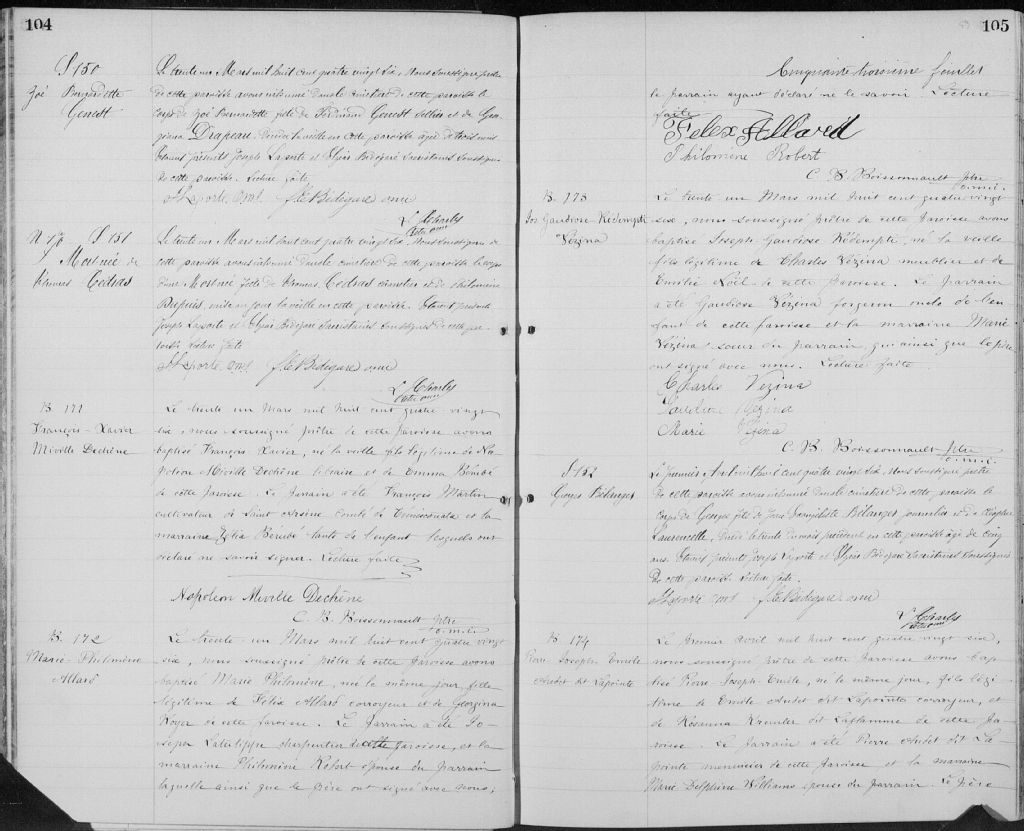 104
S 150
Zoé Bernadette
Genest
Le trente un Mars mil huit cent quatre vingt six, Nous soussigné prêtre
de cette paroisse avons inhumé dans le cimetière de cette paroisse le
corps de Zoé Bernadette fille de Ferdinand Genest sellier et de
Drapeau, décédée la veille en cette paroisse agée de trois mois
Etaient présents Joseph Laporte et Elzéar Bédégaré Sacristains soussignés
de cette paroisse. Lecture faite
Js Laporte
L. E. Charles
Ptre
S 151
Mort née de
Cédras
Le trente un Mars mil huit cent quatre vingt six, Nous soussigné prêtre de
cette paroisse avons inhumé dans le cimetière de cette paroisse le corps
d'une Mort née fille de Cédras et de Philomène
Dupuis, ondée un jour la veille en cette paroisse. Etaient présents
Joseph Laporte et Elzéar Bédégaré Sacristains soussignés de cette
paroisse Lecture faite
Js Laporte
L. E. Charles
Ptre
B. 171
François-Xavier
Miville Dechêne
Le trente un Mars mil huit cent quatre vingt
six, nous soussigné prêtre de cette paroisse avons
baptisé François Xavier, né la veille fils légitime de Na-
poléon Miville Dechêne et de Emma Bérubé
de cette paroisse. Le parrain a été François Martin
cultivateur de Saint Arsène Comté de Témiscouata et la
marraine Zélia Bérubé tante de l'enfant lesquels ont
déclaré ne savoir signer. Lecture faite
Napoléon Miville Dechêne
C. B. Boissonnault ptre
B. 172
Marie-Philomène
Allard
Le trente un Mars mil huit cent quatre vingt
six, nous soussigné prêtre de cette paroisse avons
baptisé Marie Philomène, née le même jour, fille
légitime de Félix Allard corroyeur et de Georgina
Royer de cette paroisse. Le parrain a été Jo-
seph charpentier de cette paroisse, et la
marraine Philomène Robert épouse du parrain
laquelle ainsi que le père ont signé avec nous;
105
Cinquante troisième feuillet
le parrain ayant déclaré ne le savoir. Lecture
faite
Felix Allard
Philomène Robert
C. B. Boissonnault ptre
B. 173
Jos Gaudiose-Rédempté
Vézina
Le trente un Mars mil huit cent quatre vingt
six, nous soussigné prêtre de cette paroisse avons
baptisé Joseph Gaudiose Rédempté, né la veille
fils légitime de Charles Vézina meublier et de
Emélie Noël de cette paroisse. Le parrain
a été Gaudiose Vézina forgeron oncle de l'en-
fant de cette paroisse et la marraine Marie
Vézina soeur du parrain, qui ainsi que le père
ont signé avec nous. Lecture faite.
Charles Vezina
Vezina
Marie Vezina
C. B. Boissonnault ptre
S 152
Georges Bélanger
Le premier Avril mil huit cent quatre vingt six, Nous soussigné prêtre
de cette paroisse avons inhumé dans le cimetière de cette paroisse le
corps de Georges fils de Bélanger journalier et de
décédé le trente du mois précédent en cette paroisse agé de cinq
ans. Etaient présents Joseph Laporte et Elzéar Bédégaré Sacristains soussignés
de cette paroisse Lecture faite.
Js Laporte
L. E. Charles
Ptre
B. 174
Pierre Joseph Emile
Audet dit Lapointe
Le premier avril mil huit cent quatre vingt six,
nous soussigné prêtre de cette paroisse avons bap-
tisé Pierre Joseph Emile, né le même jour, fils légi-
time de Emile Audet dit Lapointe corroyeur, et
de Rosanna dit Laflamme de cette pa-
roisse. Le parrain a été Pierre Audet dit La-
pointe menuisier de cette paroisse et la marraine
Marie Delphine Williams épouse du parrain. Le père